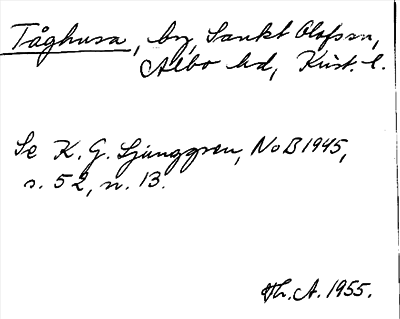 Tåghusa, by, Sankt Olofs sn,
Albo hd, Krist. l.
Se K. G. Ljunggren, NoB 1945,
s. 52, n. 13.
Th. A. 1955.